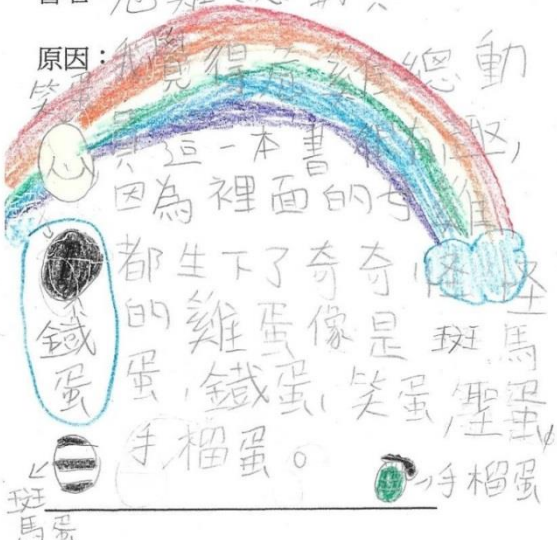 原因：我覺得雞總動
員這一本書很有趣，
因為裡面的雞
都生下了奇奇怪怪
的雞蛋像是斑馬
蛋，鐵蛋，笑蛋，蛋，
手榴蛋。
笑蛋
鐵
蛋
斑
馬蛋
手榴蛋